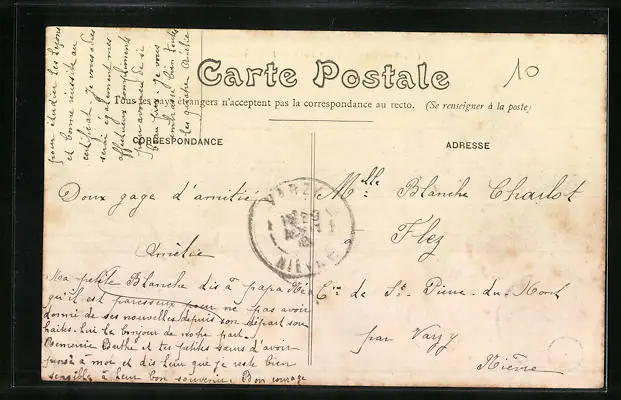 Carte Postale
Tous les pays étrangers n'acceptent pas la correspondance au recto. (Se renseigner à la poste)
10
CORRESPONDANCE
ADRESSE
Doux gage d'amitié
Amélie
Ma petite Blanche dis à papa
qu'il est paresseux pour ne pas avoir
donné de ses nouvelles depuis son départ sou
haites-lui le bonjour de notre part.
Berthe et tes petites sœurs d'avoir
pensé à moi et dis leur que je reste bien
sensible à leur bon souvenir. Bon courage
pour étudier tes leçons
et bonne réussite au
certificat. Je vous
serai également mes
affectueux compliments
si
beau prix. Je vous
embrasse bien toutes
les quatre Amélie
Mlle Blanche Charlot
à Flez
Cne de St Pierre-du-Mont
par Varzy
Nièvre
VARZY
NIEVRE